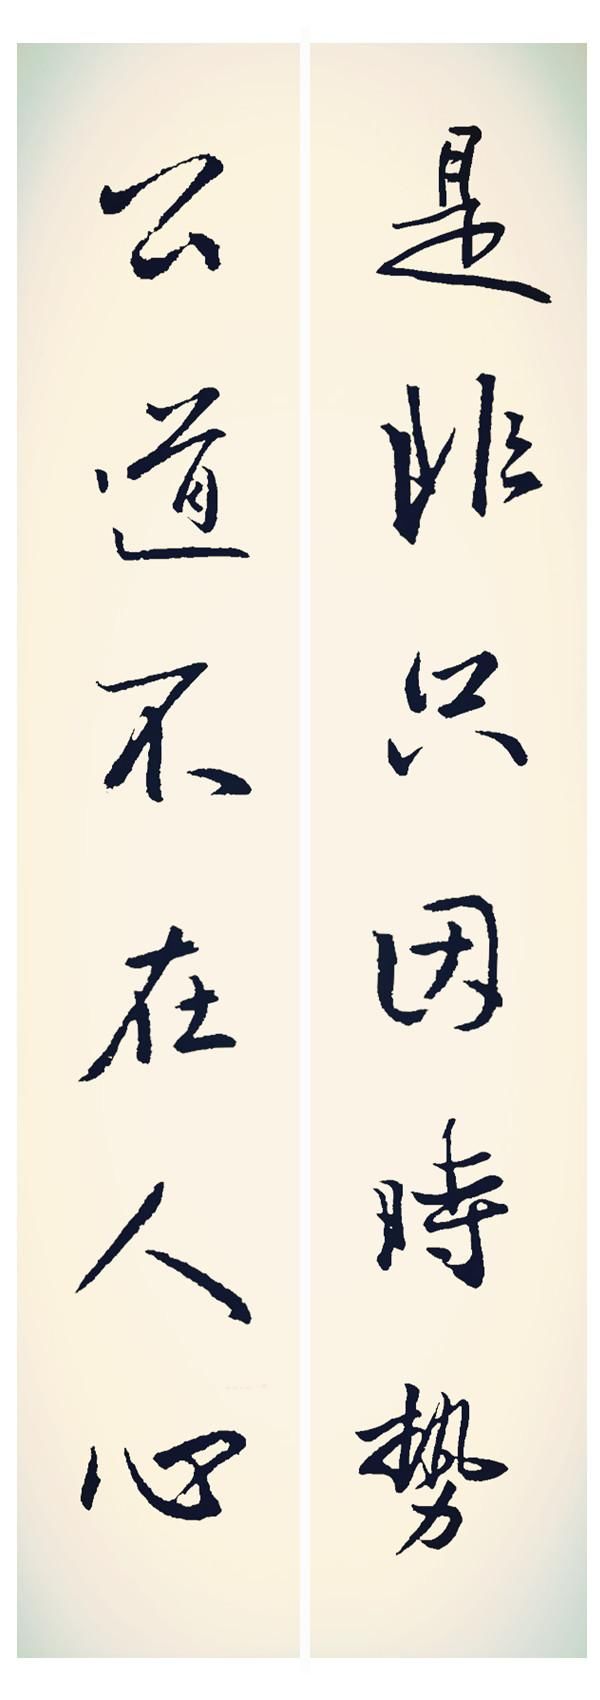 是非只因時勢
公道不在人心